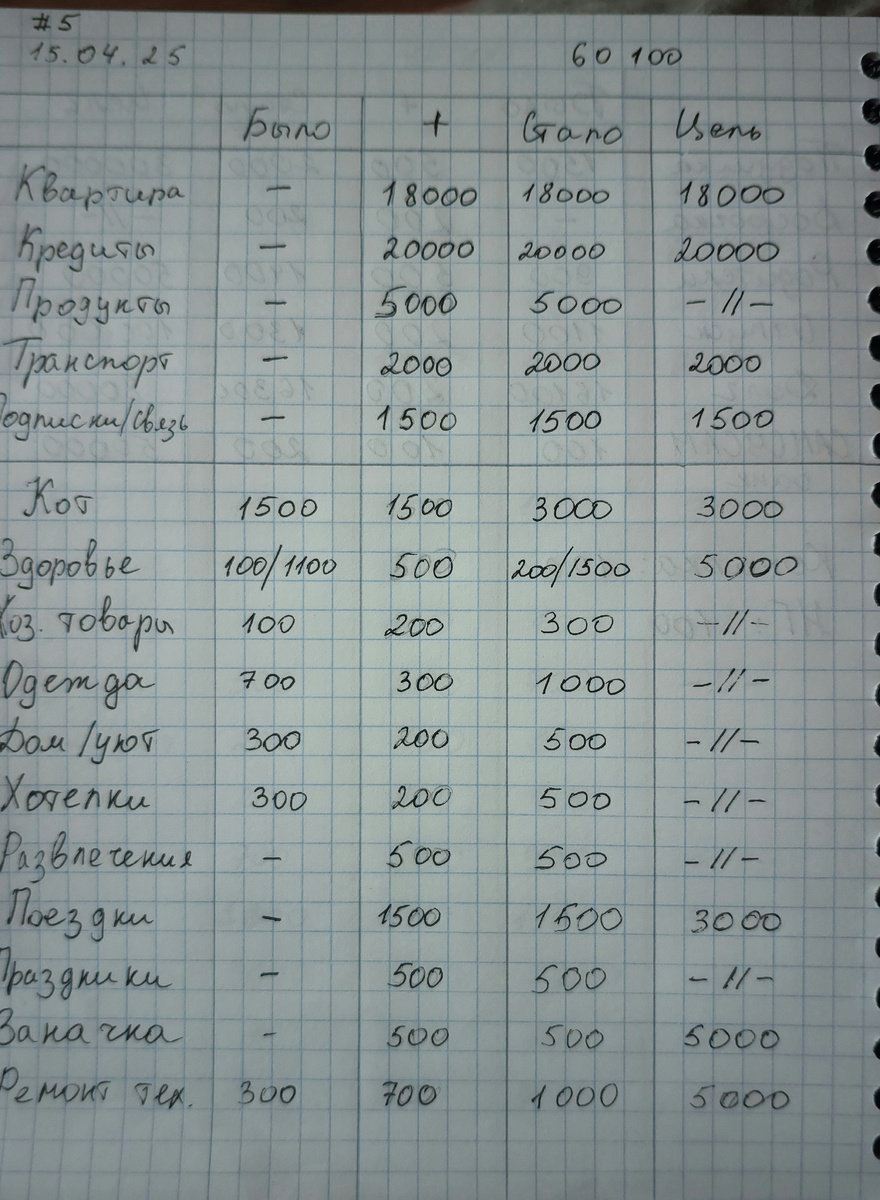 #5
15.04.25 60 100
Было + Стало Цель
Квартира — 18000 18000 18000
Кредиты — 20000 20000 20000
Продукты — 5000 5000 -//-
Транспорт — 2000 2000 2000
Подписки/связь — 1500 1500 1500
Кот 1500 1500 3000 3000
Здоровье 100/1100 500 200/1500 5000
Хоз. товары 100 200 300 -//-
Одежда 700 300 1000 -//-
Дом/уют 300 200 500 -//-
Хотелки 300 200 500 -//-
Развлечения - 500 500 -//-
Поездки - 1500 1500 3000
Праздники - 500 500 -//-
Заначка - 500 500 5000
Ремонт тех. 300 700 1000 5000